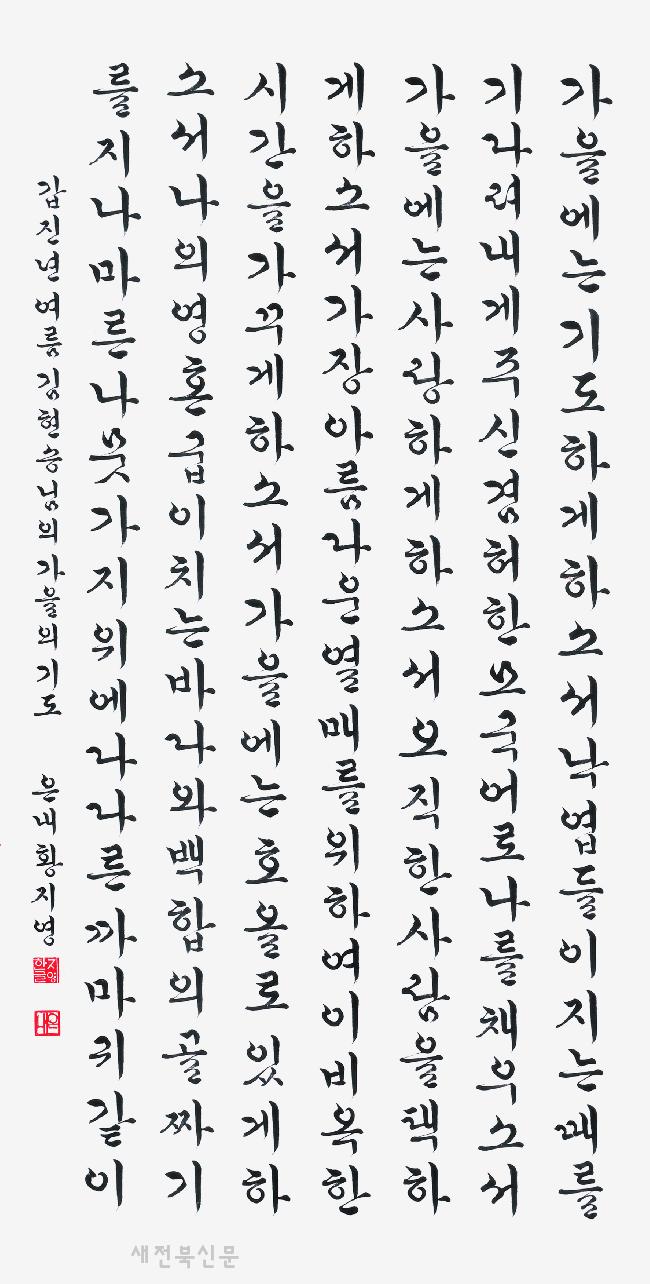 가을에는기도하게하소서낙엽들이지는때를
기다려내게주신겸허한모국어로나를채우소서
가을에는사랑하게하소서오직한사람을택하
게하소서가장아름다운열매를위하여이비옥한
시간을가꾸게하소서가을에는호올로있게하
소서나의영혼굽이치는바다와백합의골짜기
를지나마른나뭇가지위에다다른까마귀같이
갑진년여름김현승님의가을의기도 은내황지영
은내
새전북신문